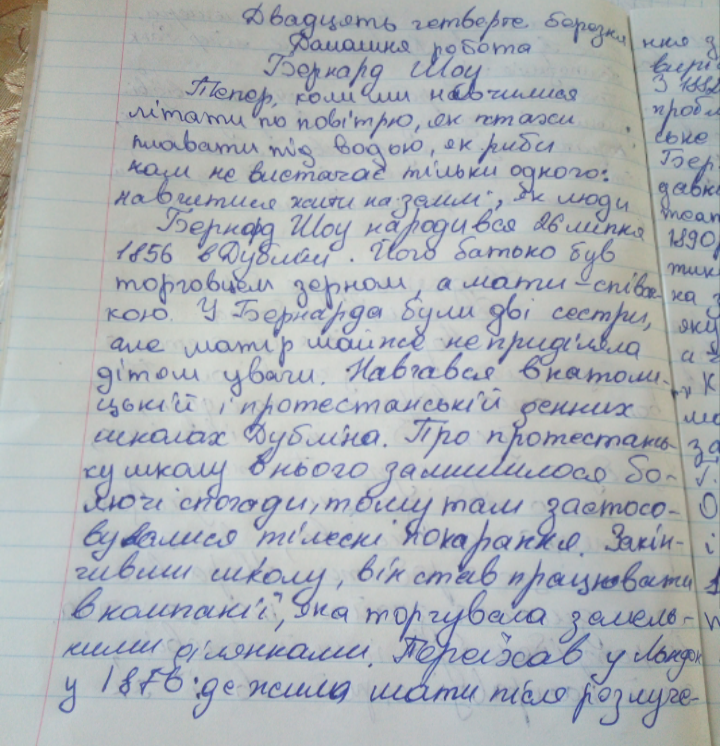 Двадцять четверте березня
Домашня робота
Бернард Шоу
Тепер, коли ми навчилися
літати по повітрю, як птахи
плавати під водою, як риби
нам не вистачає тільки одного:
навчитися жити на землі, як люди
Бернард Шоу народився 26 липня
1856 в Дубліні. Його батько був
торговцем зерном, а мати - співач-
кою. У Бернарда були дві сестри,
але матір майже не приділяла
дітям уваги. Навчався в католи-
цькій і протестанській денних
школах Дубліна. Про протестансь-
ку школу в нього залишилося бо-
лючі спогади, тому там застосо-
вувалися тілесні покарання. Закін-
чивши школу, він став працювати
в компанії, яка торгувала земель-
ними ділянками. Переїхав у Лондон
у 1876 де жила мати після розлуче-
ння з
виріш
З 1882
пробл
ське
Бер
давн
теат
1890
на з
яку
а
К
мо
за